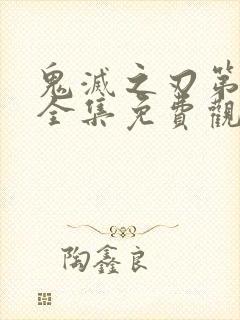 鬼滅之刃第
全集免費觀
陶鑫良